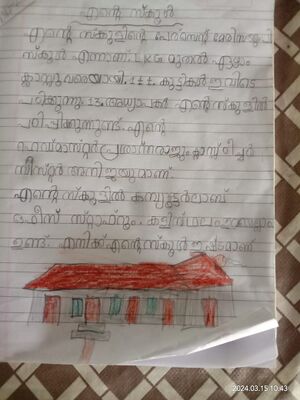 എന്റെ സ്കൂൾ
എന്റെ സ്കൂളിന്റെ പേര് സെന്റ് മേരിസ് യു പി
സ്കൂൾ എന്നാണ്. LKG മുതൽ ഏഴാം
ക്ലാസ്സു വരെയായി. കുട്ടികൾ ഇവിടെ
പഠിക്കുന്നു. 13. അധ്യാപകർ എന്റെ സ്കൂളിൽ
പഠിപ്പിക്കുന്നുണ്ട്. എന്റെ
ഹെഡ്മാസ്റ്റർ ക്ലാസ്സ് ടീച്ചർ
സിസ്റ്റർ
എന്റെ സ്കൂളിൽ കമ്പ്യൂട്ടർലാബ്
ഓഫീസ് സ്റ്റാഫ്റൂം.
ഉണ്ട്. എനിക്ക് എന്റെ സ്കൂൾ ഇഷ്ടമാണ്
2024.03.15 10:43